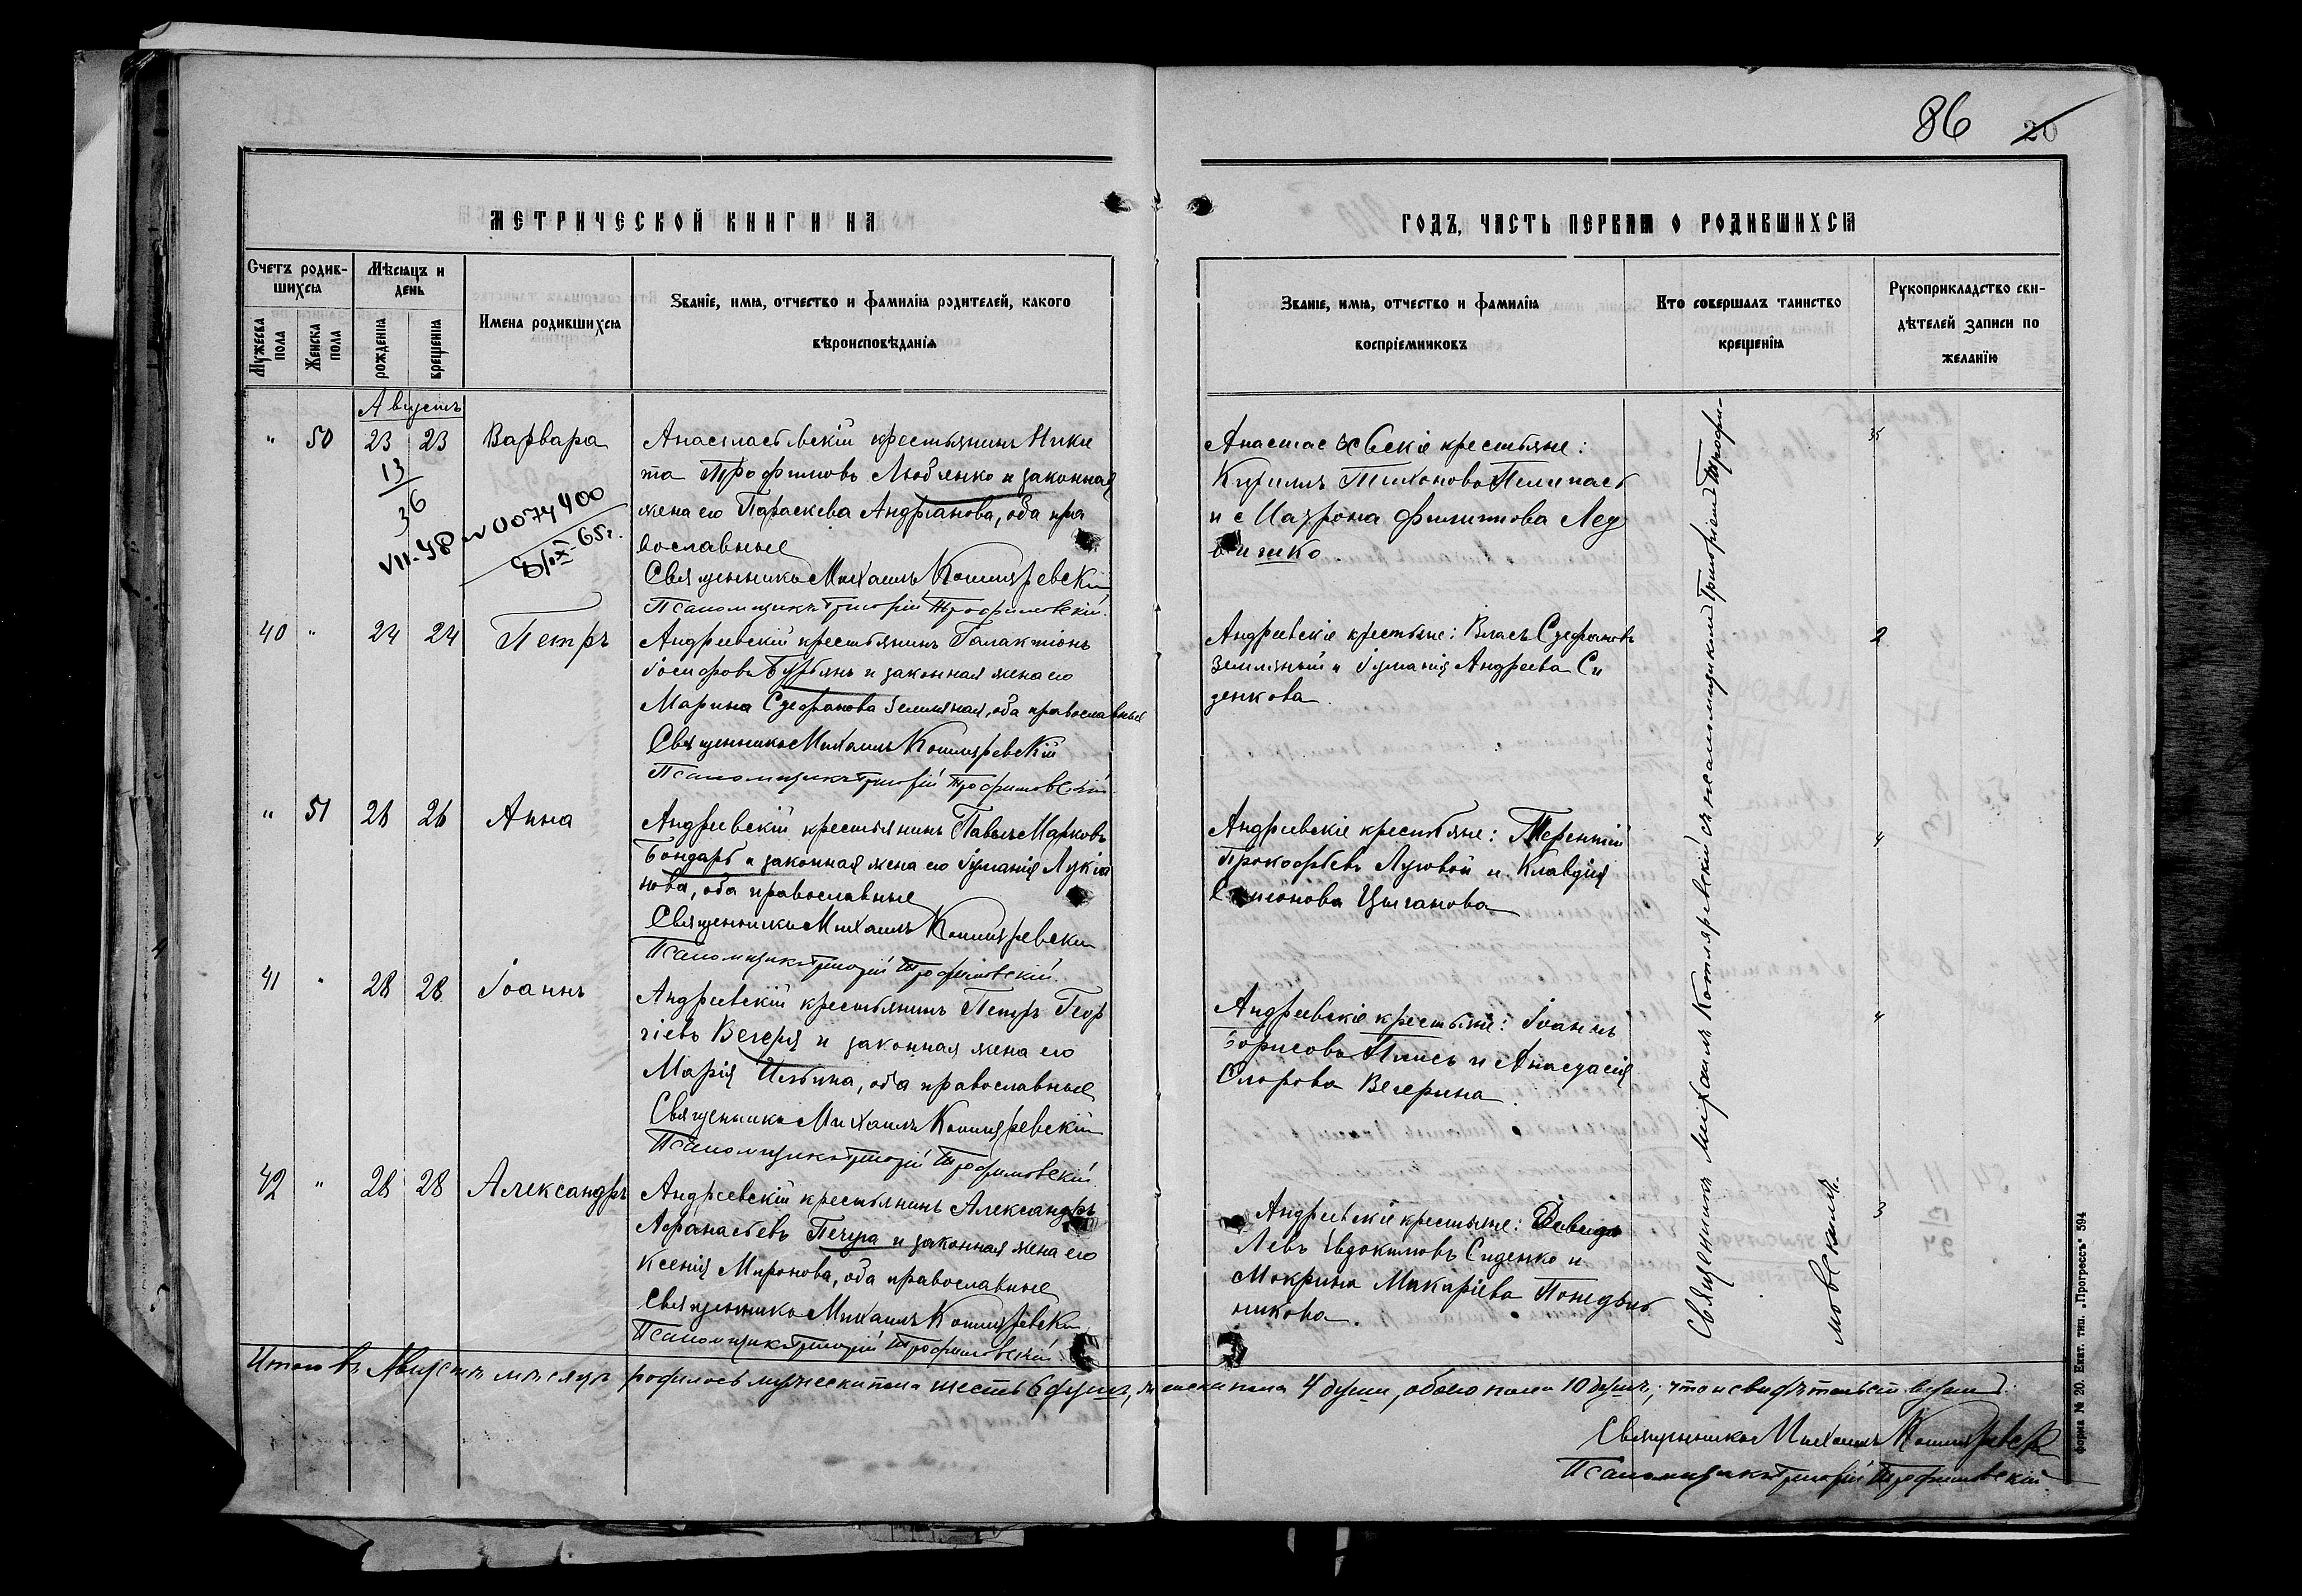 86 20
МЕТРИЧЕСКОЙ КНИГИ НА
ГОДЪ, ЧАСТЬ ПЕРВАЯ О РОДИВШИХСЯ
Счетъ родив-
шихся
Мужеска
пола
Женска
пола
Мѣсяцъ и
день
рожденія
крещенія
Имена родившихся
Званіе, имя, отчество и фамилія родителей, какого
вѣроисповѣданія
Званіе, имя, отчество и фамилія
воспріемниковъ
Кто совершалъ таинство
крещенія
Рукоприкладство сви-
дѣтелей записи по
желанію
Августъ
" 50 23 23 Варвара
13
36
VII-ЧР № 0074400
65г.
Анастасьевскій крестьянинъ Ники
та Трофимовъ Любченко и законная
жена его Параскева Андріанова, оба пра
вославные
Священникъ Михаилъ Котляревскій
Псаломщикъ Григорій Трофимовскій.
Анастасьевскіе крестьяне:
Кириллъ Тихоновъ
и Матрона Филиппова
35
40 " 24 24 Петръ
Андреевскій крестьянинъ Галактіонъ
Іосифовъ Бурбянъ и законная жена его
Марина Стефанова Земляная, оба православные
Священникъ Михаилъ Котляревскій
Псаломщикъ Григорій Трофимовскій
Андреевскіе крестьяне: Власъ Стефановъ
Земляный и Іуліанія Андреева Си
денкова.
2
" 51 26 26 Анна
Андреевскій крестьянинъ Павелъ Марковъ
Бондарь и законная жена его Іуліанія Лукіа
нова, оба православные
Священникъ Михаилъ Котляревскій
Псаломщикъ Григорій Трофимовскій.
Андреевскіе крестьяне: Терентій
Прокофьевъ Луговой и Клавдія
Симонова Цыганова
"
41 " 28 28 Іоаннъ
Андреевскій крестьянинъ Петръ Геор
гіевъ Вечеря и законная жена его
Марія Ильина, оба православные
Священникъ Михаилъ Котляревскій
Псаломщикъ Григорій Трофимовскій.
Андреевскіе крестьяне: Іоаннъ
Борисовъ и Анастасія
Вечерина.
"
42 " 28 28 Александръ
Андреевскій крестьянинъ Александръ
Афанасьевъ Печура и законная жена его
Ксенія Миронова, оба православные
Священникъ Михаилъ Котляревскій
Псаломщикъ Григорій Трофимовскій.
Андреевскіе крестьяне:
Левъ Евдокимовъ Сиденко и
Мокрина Макаріева
никова.
3
Священникъ Михаилъ Котляревскій съ псаломщикомъ Григоріемъ Трофи-
мовскимъ.
Итого въ Августѣ мѣсяцѣ родилось мужеска пола шесть 6 душъ, женска пола 4 души, обоего пола 10 душъ; что и свидѣтельствуемъ
Священникъ Михаилъ Котляревскій
Псаломщикъ Григорій Трофимовскій.
Форма № 20. Екат. тип. „Прогрессъ" 594